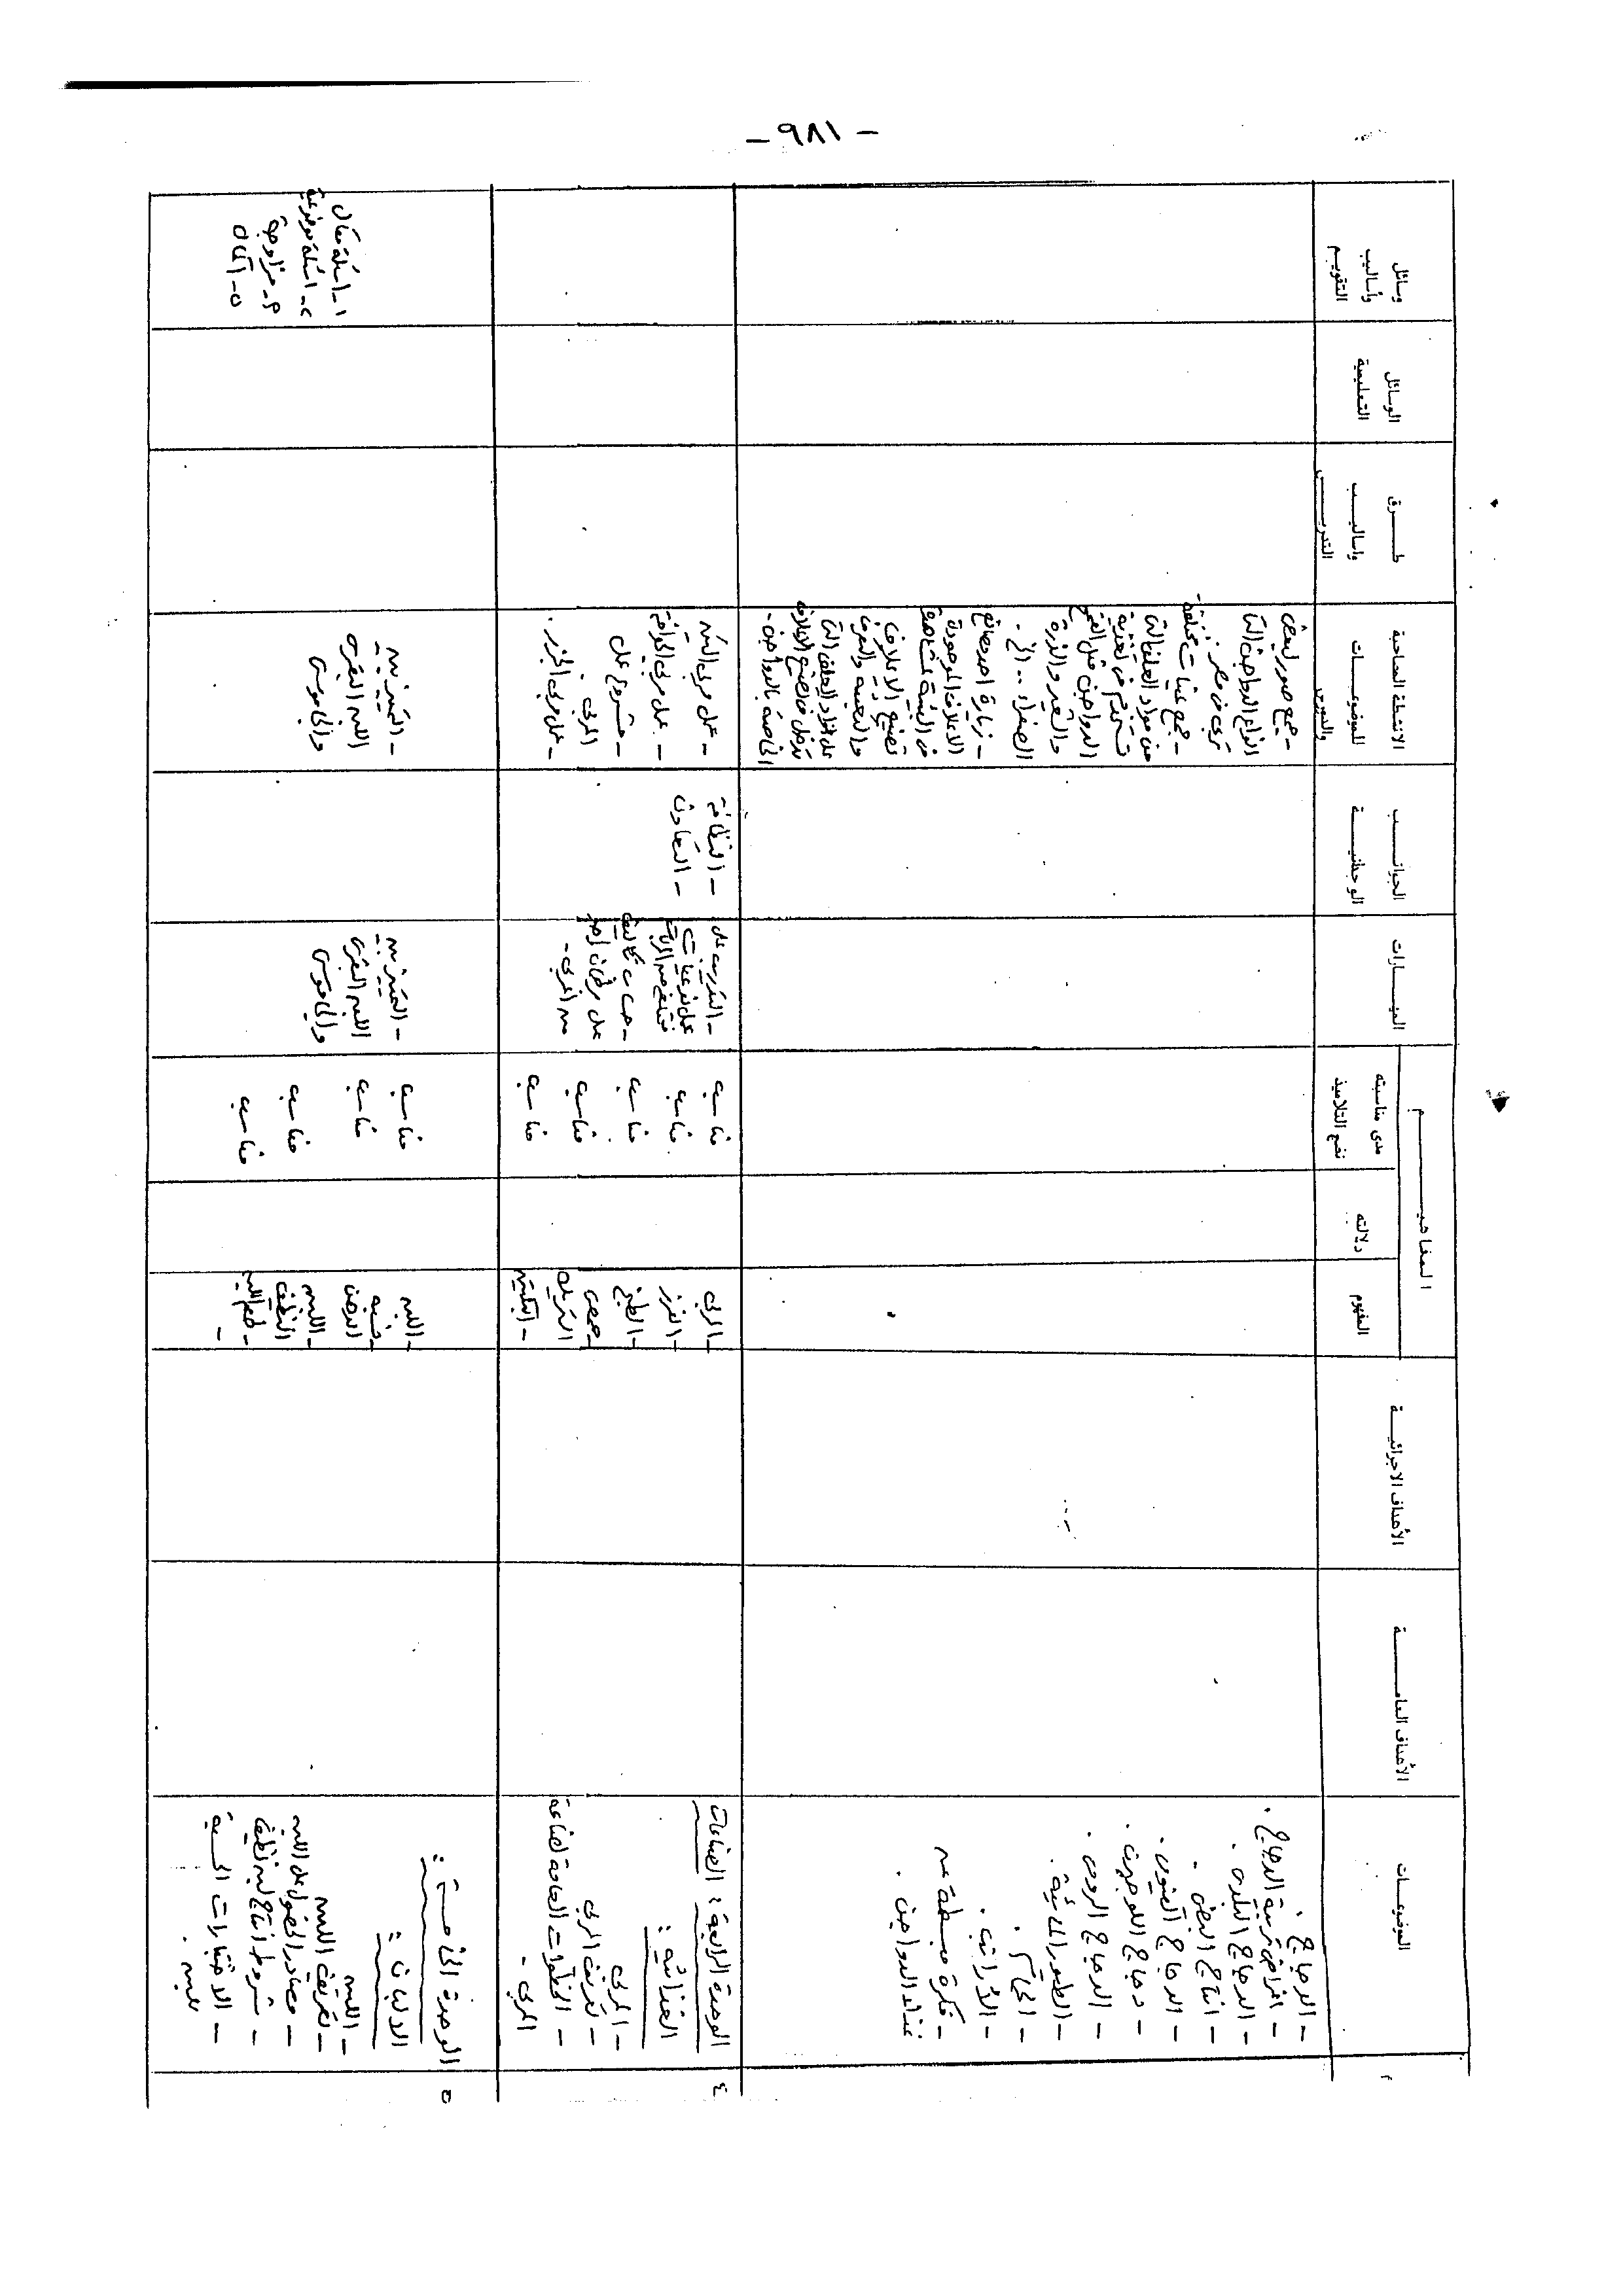 - ٩٨١ -
م
الموضوعات
الأهداف العامة
الأهداف الاجرائية
المفاهيم
المفهوم
دلالته
مدى مناسبته
نضج التلاميذ
المهارات
الجوانب
الوجدانية
الانشطة المصاحبة
للموضوعات
طرق
واساليب
التدريس
الوسائل
التعليمية
وسائل
وأساليب
التقويم
- الدجاج .
- امراض تربية الدجاج .
- الدجاج البلدى .
- انتاج البيض .
- الدجاج الفيومى .
- دجاج اللوجهورن .
- الدجاج الرومى .
- الطيور المائية .
- الحمام .
- الأرانب .
- فكرة مبسطة عن
غذاء الدواجن .
- جمع صور لبعض
انواع الدواجن التى
تربى فى مصر .
- جمع عينات مختلفة
من مواد العلف التى
تستخدم فى تغذية
الدواجن مثل القمح
والشعير والذرة
الصفراء .. الخ .
- زيارة احد مصانع
الاعلاف الموجودة
فى البيئة لمشاهدة
تصنيع الاعلاف
والتعبئة والتعرف
على مواد العلف التى
تدخل فى تصنيع الاعلاف
الخاصة بالدواجن .
٤
الوحدة الرابعة : الصناعات
الغذائية :
- المربى
- تعريف المربى
- الخطوات العامة لصناعة
المربى .
- المربى
- الفرز
- الطبخ
- حمض
الستريك
- البكتين
مناسب
مناسب
مناسب
مناسب
مناسب
- التدريب على
عمل نوعيات
مختلفة من المربات
- حساب تكاليف
عمل برطمان واحد
من المربى .
- النظافة
- التعاون
- عمل مربى التين
- عمل مربى الجوافة
- مشروع عمل
المربى .
- عمل مربى الجزر .
٥
الوحدة الخامسة :
الالبان :
- اللبن
- تعريف اللبن
- مصادر الحصول على اللبن
- شروط انتاج لبن نظيف
- الاختبارات الحسية
للبن .
- اللبن
- نسبة
الدهن
- اللبن
النظيف
- طعم اللبن
مناسب
مناسب
مناسب
مناسب
- التمييز بين
اللبن البقرى
والجاموسى
- التمييز بين
اللبن البقرى
والجاموسى
١- اسئلة مقال
٢- اسئلة موضوعية
٣- مزاوجة